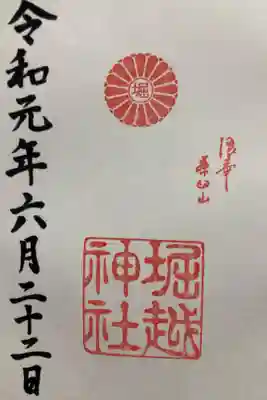 浪華
茶臼山
堀
堀越
神社
令和元年六月二十二日